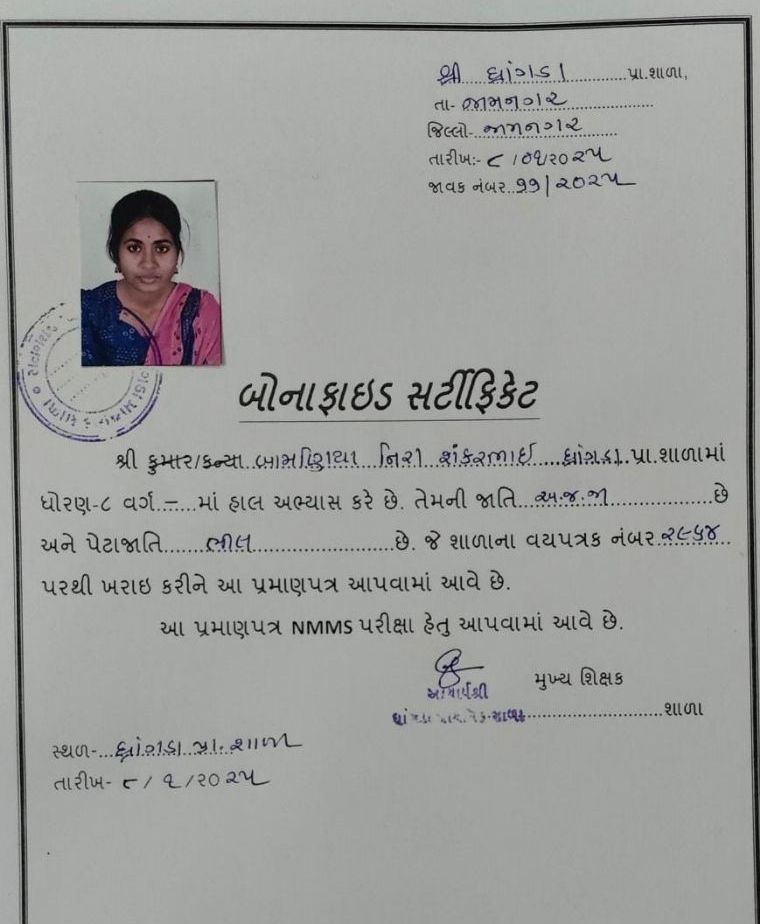 શ્રી ધ્રાંગડા પ્રા.શાળા,
તા- જામનગર
જિલ્લો- જામનગર
તારીખ:- ૮ /૦૧/૨૦૨૫
જાવક નંબર..૧૧/૨૦૨૫
બોનાફાઇડ સર્ટીફિકેટ
શ્રી કુમાર/કન્યા બામણિયા નિરા શંકરભાઈ ધ્રાંગડા.પ્રા.શાળામાં
ધોરણ-૮ વર્ગ – માં હાલ અભ્યાસ કરે છે. તેમની જાતિ અ.જ.જા છે
અને પેટાજાતિ ભીલ છે. જે શાળાના વયપત્રક નંબર ૨૯૫૪
પરથી ખરાઇ કરીને આ પ્રમાણપત્ર આપવામાં આવે છે.
આ પ્રમાણપત્ર NMMS પરીક્ષા હેતુ આપવામાં આવે છે.
મુખ્ય શિક્ષક
આચાર્યશ્રી
શાળા
સ્થળ- ધ્રાંગડા પ્રા. શાળા
તારીખ- ૮/ ૧/૨૦૨૫